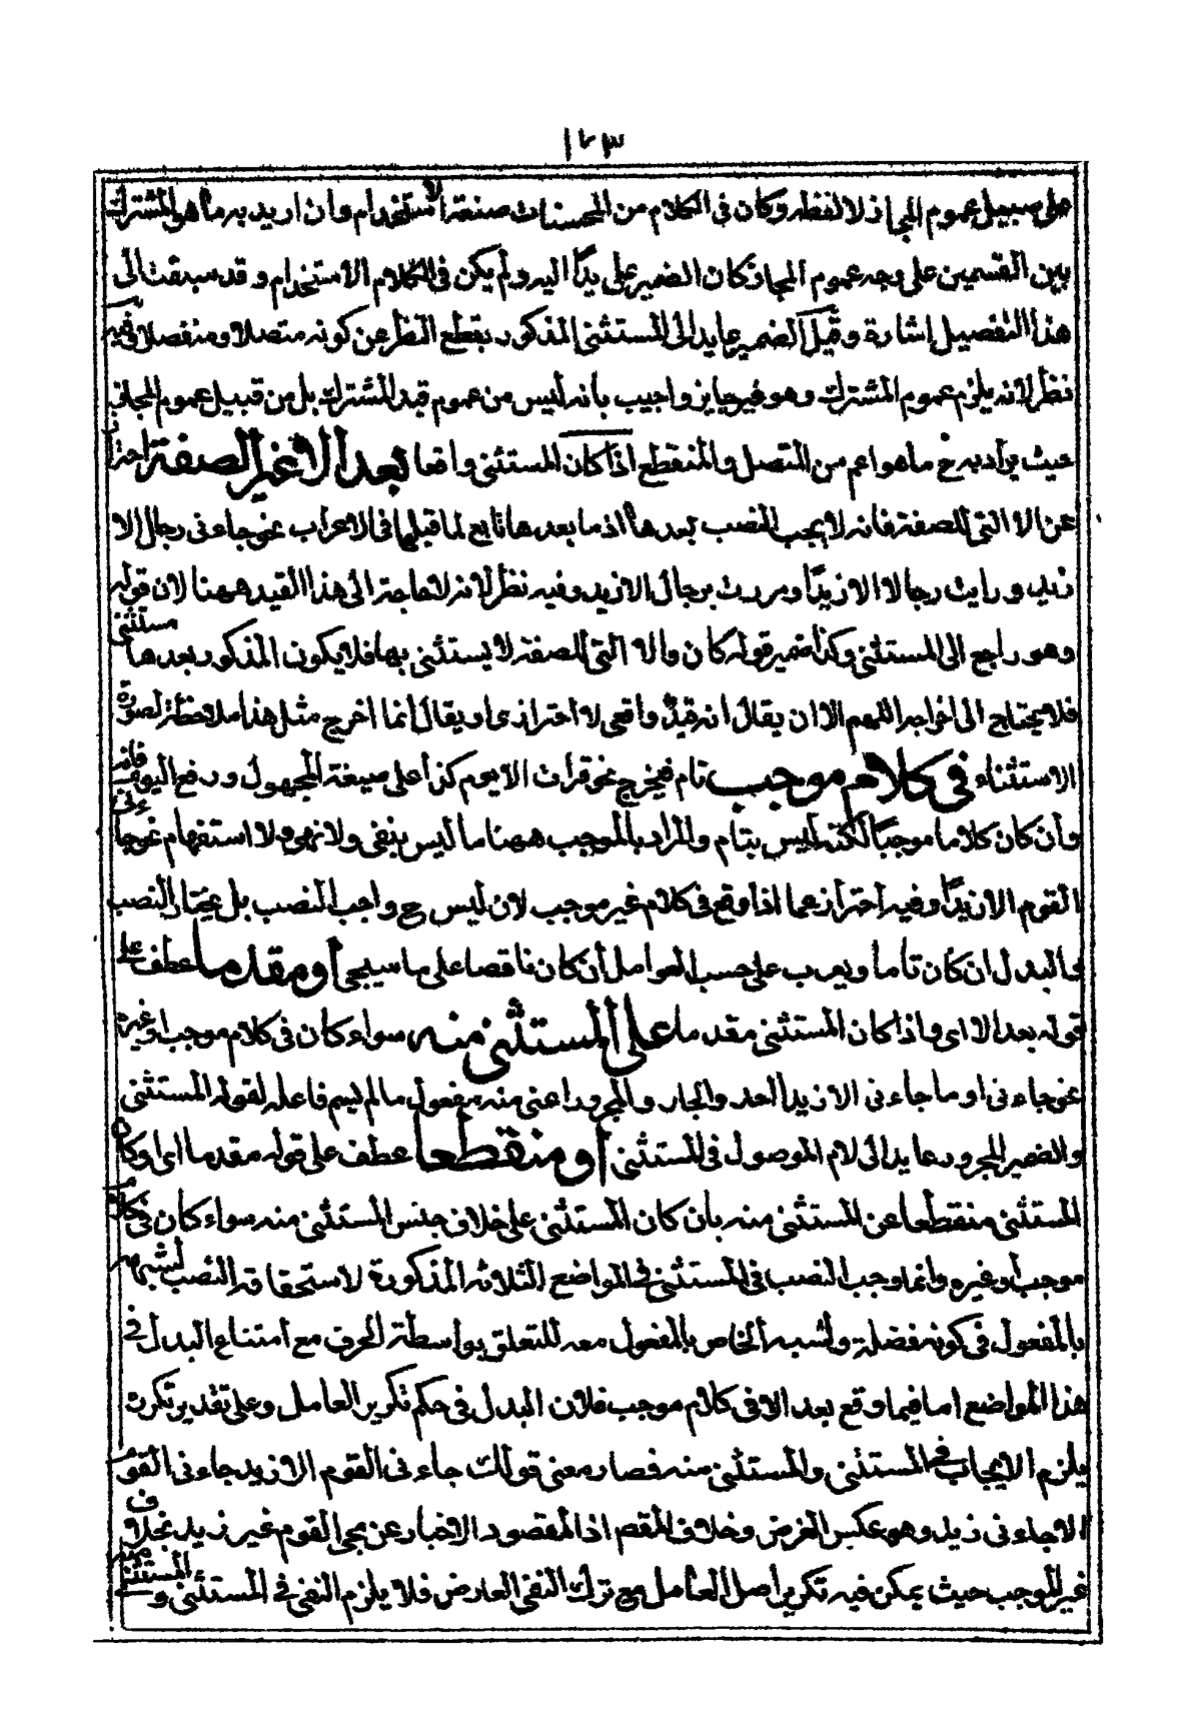 ١٢٣
على سبيل عموم المجاز لا لفظه وكان في الكلام من المحسنات صنعة الاستخدام وان اريد به ما هو المشترك
بين القسمين على وجه عموم المجاز كان الضمير عايدًا اليه ولم يكن في الكلام الاستخدام وقد سبقت الى
هذا التفصيل إشارة وقيل الضمير عايد الى المستثنى المذكور بقطع النظر عن كونه متصلا ومنفصلا وفيه
نظر لانه يلزم عموم المشترك وهو غير جايز واجيب بأنه ليس من عموم قبيل المشترك بل من قبيل عموم المجاز
حيث يراد به ح ما هو اعم من المتصل والمنقطع اذا كان المستثنى واقعا بعد الا غير الصفة احتراز
عن الا التى للصفة فانه لا يجب النصب بعدها اذ ما بعدها تابع لما قبلها في الاعراب نحو جاءنى رجال الا
زيد ورايت رجالا الا زيدًا ومررت برجال الا زيد وفيه نظر لانه لا حاجة الى هذا القيد ههنا لان قوله
وهو راجع الى المستثنى وكذا ضمير قوله كان والا التى للصفة لا يستثنى بها فلا يكون المذكور بعدها مستثنى
فلا يحتاج الى اخراجه اللهم الا ان يقال انه قيدٌ واقعى لا احترازى او يقال انما اخرج مثل هذا ملاحظة لصورة
الاستثناء في كلام موجب تام فيخرج نحو قرأت الا يوم كذا على صيغة المجهول ورفع اليوم فانه
وأن كان كلاما موجبًا لكنه ليس بتام والمراد بالموجب ههنا ما ليس بنفى ولا نهى ولا استفهام نحو جاءنى
القوم الا زيدًا وفيه احتراز عما اذا وقع في كلام غير موجب لان ليس ح واجب النصب بل يختار النصب
والبدل ان كان تاما ويعرب على حسب العوامل أن كان ناقصا على ما سيجئ أو مقدما عطف على
قوله بعد الا اى واذا كان المستثنى مقدما على المستثنى منه سواء كان في كلام موجب او غيره
نحو جاءنى او ما جاءنى الا زيدا احد والجار والمجرور اعنى منه مفعول ما لم يسم فاعله لقوله المستثنى
والضمير المجرور عايد الى لام الموصول في المستثنى أو منقطعا عطف على قوله مقدما اى او كان
المستثنى منقطعا عن المستثنى منه بان كان المستثنى على خلاف جنس المستثنى منه سواء كان في كلام
موجب أو غيره وانما وجب النصب في المستثنى في المواضع الثلاثة المذكورة لاستحقاقه النصب لشبهه
بالمفعول في كونه فضلة ولشبه الخاص بالمفعول معه للتعلق بواسطة الحرف مع امتناع البدل في
هذا المواضع اما فيما وقع بعد الا في كلام موجب فلان البدل في حكم تكرير العامل وعلى تقدير تكرره
يلزم الايجاب في المستثنى والمستثنى منه فصار معنى قولك جاءنى القوم الا زيد جاءنى القوم
الا جاءنى زيد وهو عكس الغرض وخلاف المقصم اذ المقصود الاخبار عن مجئ القوم غير زيد بخلاف
غير الموجب حيث يمكن فيه تكرير اصل العامل مع ترك النفى العارض فلا يلزم النفى في المستثنى والمستثنى منه